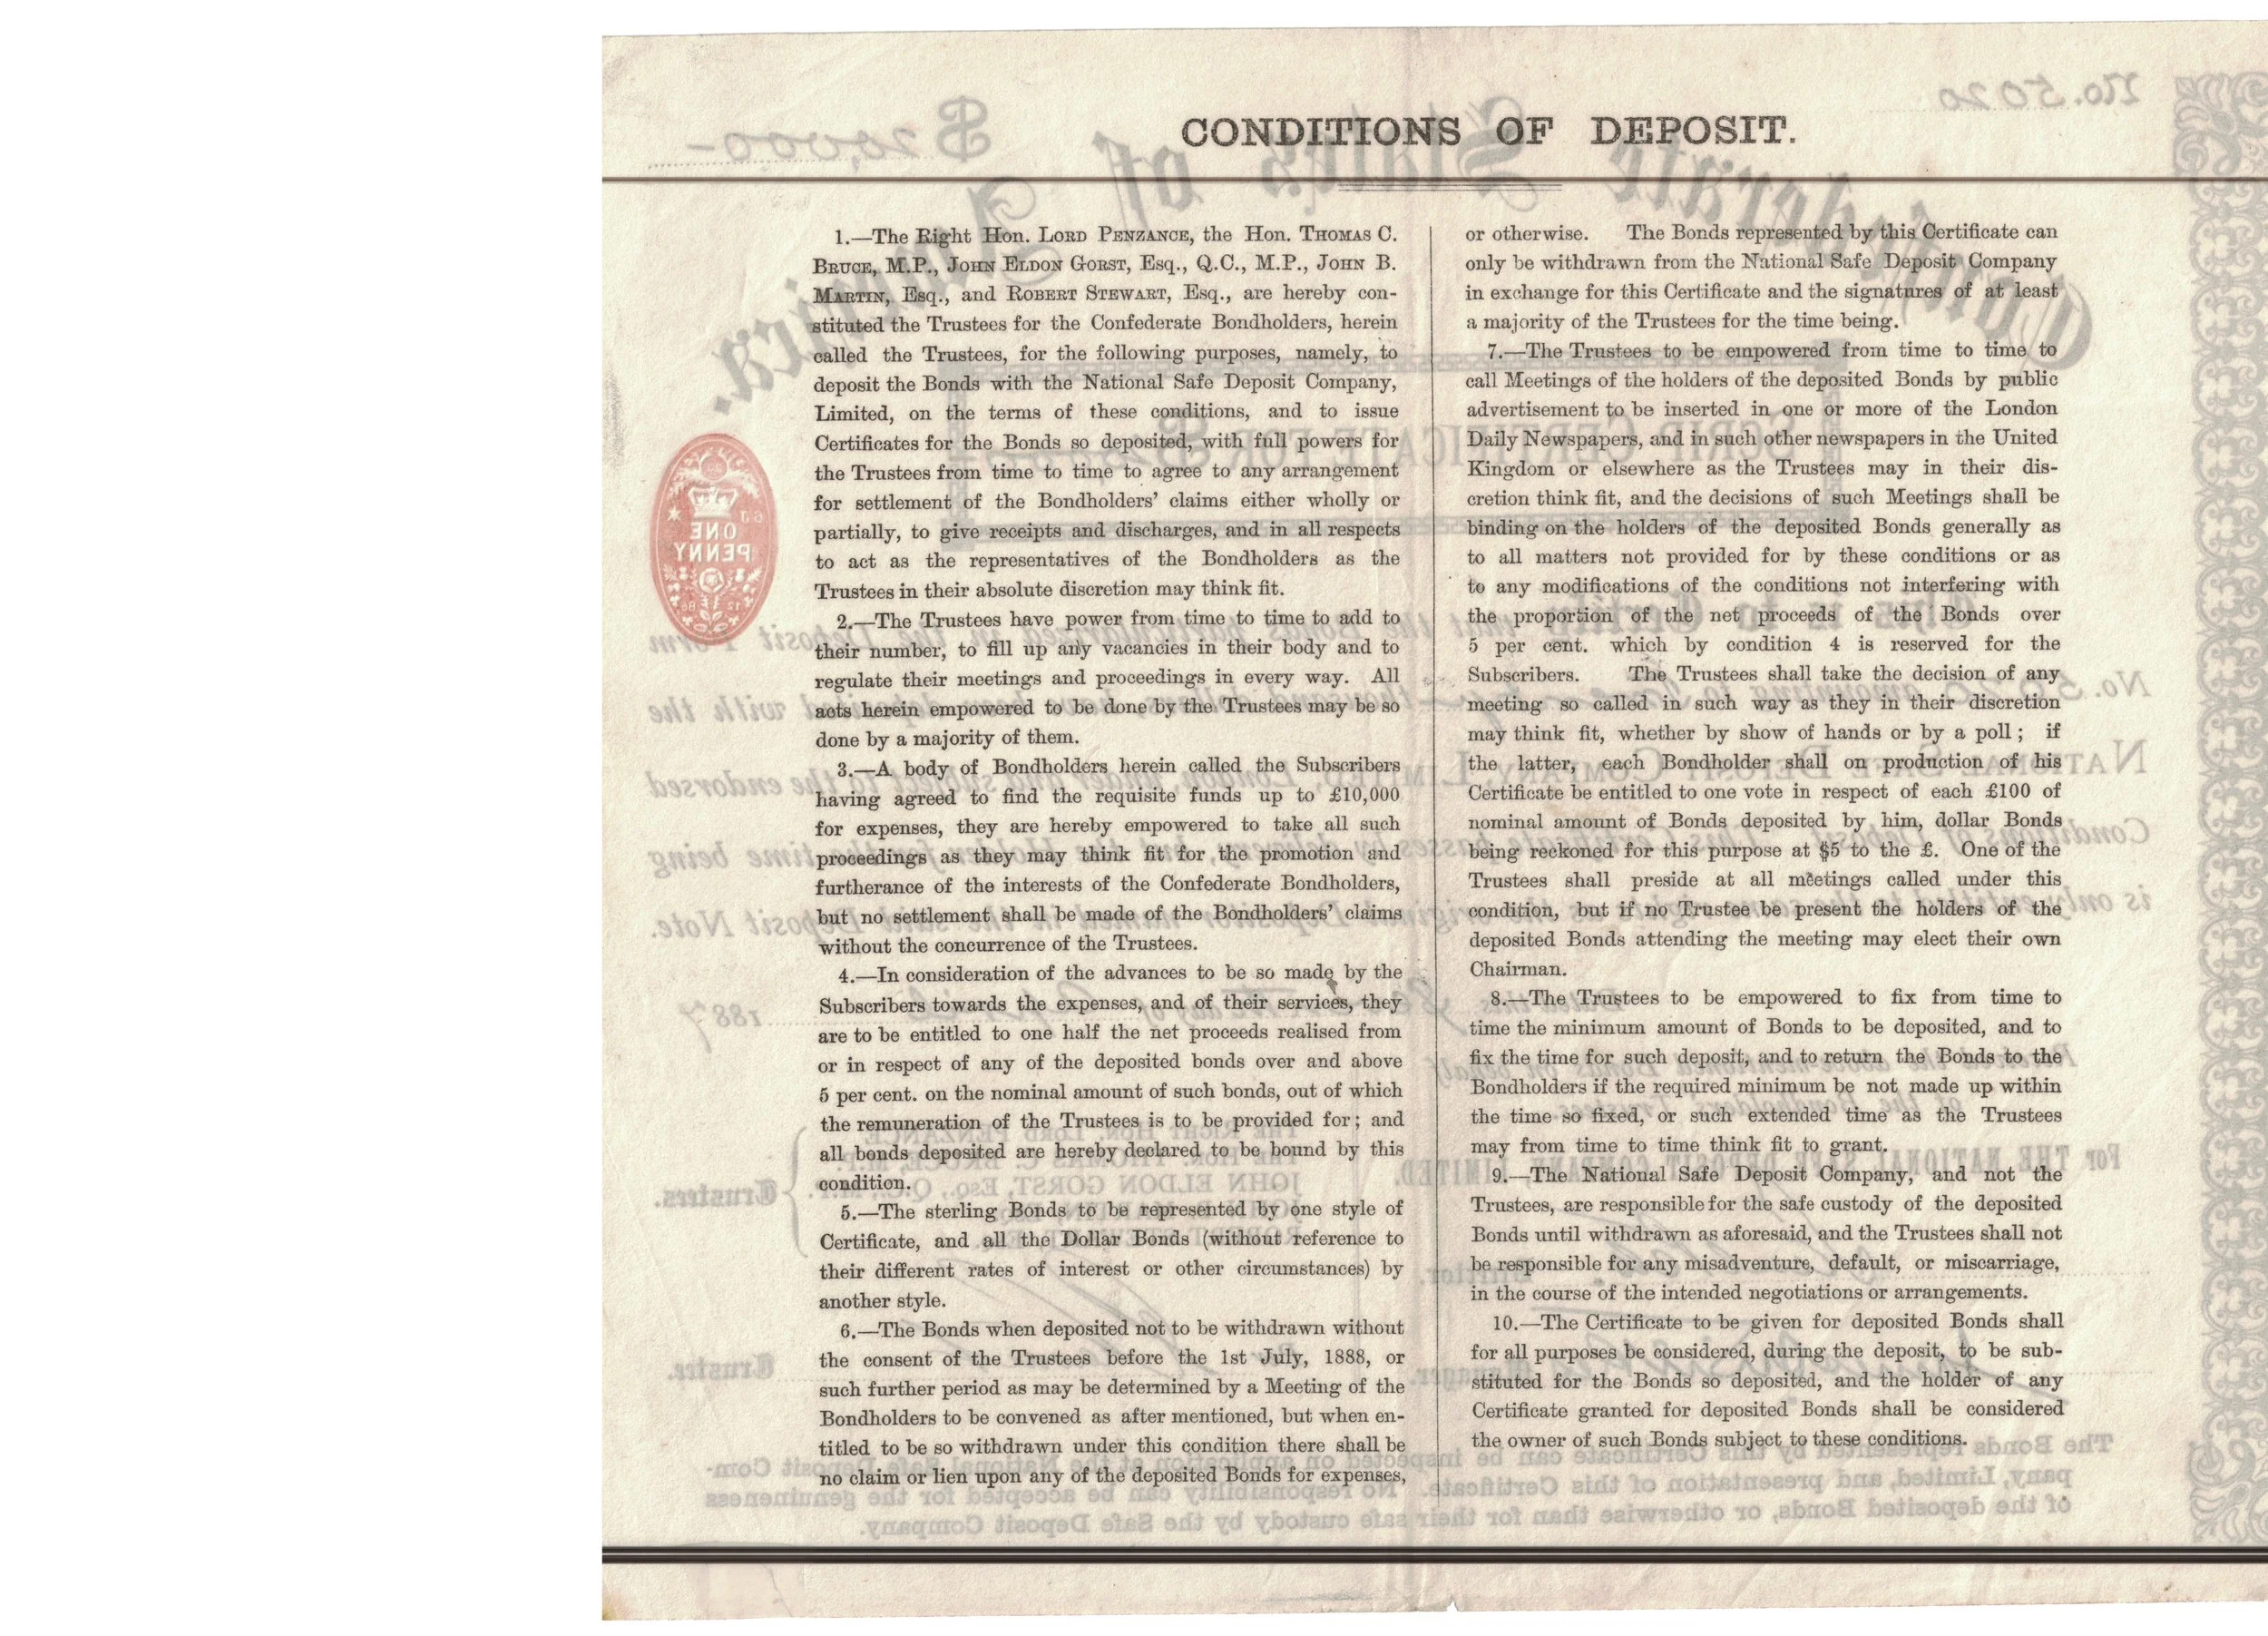 CONDITIONS OF DEPOSIT.
No. 5020
$ 20,000-
Confederate States of America.
1.—The Right Hon. LORD PENZANCE, the Hon. THOMAS C.
BRUCE, M.P., JOHN ELDON GORST, Esq., Q.C., M.P., JOHN B.
MARTIN, Esq., and ROBERT STEWART, Esq., are hereby con-
stituted the Trustees for the Confederate Bondholders, herein
called the Trustees, for the following purposes, namely, to
deposit the Bonds with the National Safe Deposit Company,
Limited, on the terms of these conditions, and to issue
Certificates for the Bonds so deposited, with full powers for
the Trustees from time to time to agree to any arrangement
for settlement of the Bondholders' claims either wholly or
partially, to give receipts and discharges, and in all respects
to act as the representatives of the Bondholders as the
Trustees in their absolute discretion may think fit.
2.—The Trustees have power from time to time to add to
their number, to fill up any vacancies in their body and to
regulate their meetings and proceedings in every way. All
acts herein empowered to be done by the Trustees may be so
done by a majority of them.
3.—A body of Bondholders herein called the Subscribers
having agreed to find the requisite funds up to £10,000
for expenses, they are hereby empowered to take all such
proceedings as they may think fit for the promotion and
furtherance of the interests of the Confederate Bondholders,
but no settlement shall be made of the Bondholders' claims
without the concurrence of the Trustees.
4.—In consideration of the advances to be so made by the
Subscribers towards the expenses, and of their services, they
are to be entitled to one half the net proceeds realised from
or in respect of any of the deposited bonds over and above
5 per cent. on the nominal amount of such bonds, out of which
the remuneration of the Trustees is to be provided for; and
all bonds deposited are hereby declared to be bound by this
condition.
5.—The sterling Bonds to be represented by one style of
Certificate, and all the Dollar Bonds (without reference to
their different rates of interest or other circumstances) by
another style.
6.—The Bonds when deposited not to be withdrawn without
the consent of the Trustees before the 1st July, 1888, or
such further period as may be determined by a Meeting of the
Bondholders to be convened as after mentioned, but when en-
titled to be so withdrawn under this condition there shall be
no claim or lien upon any of the deposited Bonds for expenses,
or otherwise. The Bonds represented by this Certificate can
only be withdrawn from the National Safe Deposit Company
in exchange for this Certificate and the signatures of at least
a majority of the Trustees for the time being.
7.—The Trustees to be empowered from time to time to
call Meetings of the holders of the deposited Bonds by public
advertisement to be inserted in one or more of the London
Daily Newspapers, and in such other newspapers in the United
Kingdom or elsewhere as the Trustees may in their dis-
cretion think fit, and the decisions of such Meetings shall be
binding on the holders of the deposited Bonds generally as
to all matters not provided for by these conditions or as
to any modifications of the conditions not interfering with
the proportion of the net proceeds of the Bonds over
5 per cent. which by condition 4 is reserved for the
Subscribers. The Trustees shall take the decision of any
meeting so called in such way as they in their discretion
may think fit, whether by show of hands or by a poll; if
the latter, each Bondholder shall on production of his
Certificate be entitled to one vote in respect of each £100 of
nominal amount of Bonds deposited by him, dollar Bonds
being reckoned for this purpose at $5 to the £. One of the
Trustees shall preside at all meetings called under this
condition, but if no Trustee be present the holders of the
deposited Bonds attending the meeting may elect their own
Chairman.
8.—The Trustees to be empowered to fix from time to
time the minimum amount of Bonds to be deposited, and to
fix the time for such deposit, and to return the Bonds to the
Bondholders if the required minimum be not made up within
the time so fixed, or such extended time as the Trustees
may from time to time think fit to grant.
9.—The National Safe Deposit Company, and not the
Trustees, are responsible for the safe custody of the deposited
Bonds until withdrawn as aforesaid, and the Trustees shall not
be responsible for any misadventure, default, or miscarriage,
in the course of the intended negotiations or arrangements.
10.—The Certificate to be given for deposited Bonds shall
for all purposes be considered, during the deposit, to be sub-
stituted for the Bonds so deposited, and the holder of any
Certificate granted for deposited Bonds shall be considered
the owner of such Bonds subject to these conditions.
ONE
PENNY
1887
Trustees.
Trustee.